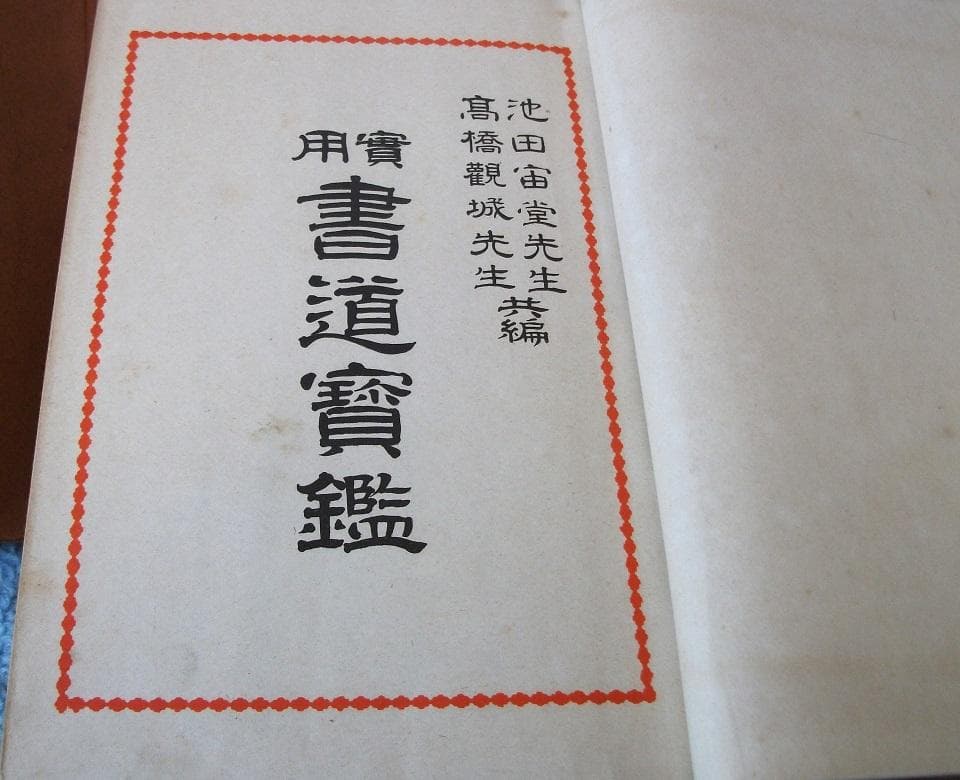 池田宙堂先生
髙橋觀城先生
共編
實用
書道寶鑑